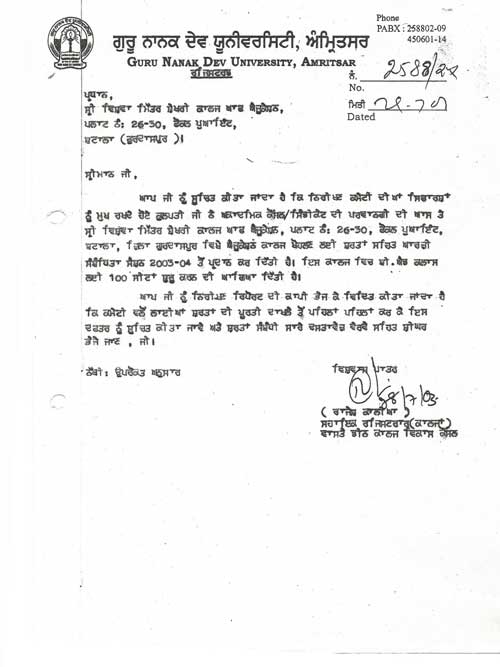 Phone
PABX : 258802-09
450601-14
ਗੁਰੂ ਨਾਨਕ ਦੇਵ ਯੂਨੀਵਰਸਿਟੀ, ਅੰਮ੍ਰਿਤਸਰ
GURU NANAK DEV UNIVERSITY, AMRITSAR
ਰਜਿਸਟਰਾਰ
ਨੰ. 2588/
No.
ਮਿਤੀ
Dated
ਪ੍ਰਧਾਨ,
ਸ੍ਰੀ ਵਿਸ਼ਵਾ ਮਿੱਤਰ ਸੇਖੜੀ ਕਾਲਜ ਆਫ ਐਜੂਕੇਸ਼ਨ,
ਪਲਾਟ ਨੰ: 26-30, ਫੋਕਲ ਪੁਆਇੰਟ,
ਬਟਾਲਾ (ਗੁਰਦਾਸਪੁਰ )।
ਸ੍ਰੀਮਾਨ ਜੀ,
ਆਪ ਜੀ ਨੂੰ ਸੂਚਿਤ ਕੀਤਾ ਜਾਂਦਾ ਹੈ ਕਿ ਨਿਰੀਖਣ ਕਮੇਟੀ ਦੀਆਂ ਸਿਫਾਰਸ਼ਾਂ
ਨੂੰ ਮੁਖ ਰਖਦੇ ਹੋਏ ਕੁਲਪਤੀ ਜੀ ਨੇ ਅਕਾਦਮਿਕ ਕੌਂਸਲ/ਸਿੰਡੀਕੇਟ ਦੀ ਪਰਵਾਨਗੀ ਦੀ ਆਸ ਤੇ
ਸ੍ਰੀ ਵਿਸ਼ਵਾ ਮਿੱਤਰ ਸੇਖੜੀ ਕਾਲਜ ਆਫ ਐਜੂਕੇਸ਼ਨ, ਪਲਾਟ ਨੰ: 26-30, ਫੋਕਲ ਪੁਆਇੰਟ,
ਬਟਾਲਾ, ਜ਼ਿਲਾ ਗੁਰਦਾਸਪੁਰ ਵਿਖੇ ਐਜੂਕੇਸ਼ਨ ਕਾਲਜ ਖੋਲਣ ਲਈ ਸ਼ਰਤਾਂ ਸਹਿਤ ਆਰਜ਼ੀ
ਸੰਬੰਧਿਤਾ ਸੈਸ਼ਨ 2003-04 ਤੋਂ ਪ੍ਰਦਾਨ ਕਰ ਦਿੱਤੀ ਹੈ। ਇਸ ਕਾਲਜ ਵਿਚ ਬੀ.ਐਡ ਕਲਾਸ
ਲਈ 100 ਸੀਟਾਂ ਸ਼ੁਰੂ ਕਰਨ ਦੀ ਆਗਿਆ ਦਿੱਤੀ ਹੈ।
ਆਪ ਜੀ ਨੂੰ ਨਿਰੀਖਣ ਰਿਪੋਰਟ ਦੀ ਕਾਪੀ ਭੇਜ ਕੇ ਲਿਖਿਤ ਕੀਤਾ ਜਾਂਦਾ ਹੈ
ਕਿ ਕਮੇਟੀ ਵਲੋਂ ਲਾਈਆਂ ਸ਼ਰਤਾਂ ਦੀ ਪੂਰਤੀ ਦਾਖਲੇ ਤੋਂ ਪਹਿਲਾਂ ਪਹਿਲਾਂ ਕਰ ਕੇ ਇਸ
ਦਫਤਰ ਨੂੰ ਸੂਚਿਤ ਕੀਤਾ ਜਾਵੇ ਅਤੇ ਸ਼ਰਤਾਂ ਸੰਬੰਧੀ ਸਾਰੇ ਦਸਤਾਵੇਜ਼ ਵੇਰਵੇ ਸਹਿਤ ਸ਼ੀਘਰ
ਭੇਜੇ ਜਾਣ , ਜੀ।
ਨੱਥੀ: ਉਪਰੋਕਤ ਅਨੁਸਾਰ
ਵਿਸ਼ਵਾਸ ਪਾਤਰ
28/7/03
( ਰਾਜੇਸ਼ ਕਾਲੀਆ )
ਸਹਾਇਕ ਰਜਿਸਟਰਾਰ(ਕਾਲਜਾਂ)
ਵਾਸਤੇ ਡੀਨ ਕਾਲਜ ਵਿਕਾਸ ਕੌਂਸਲ